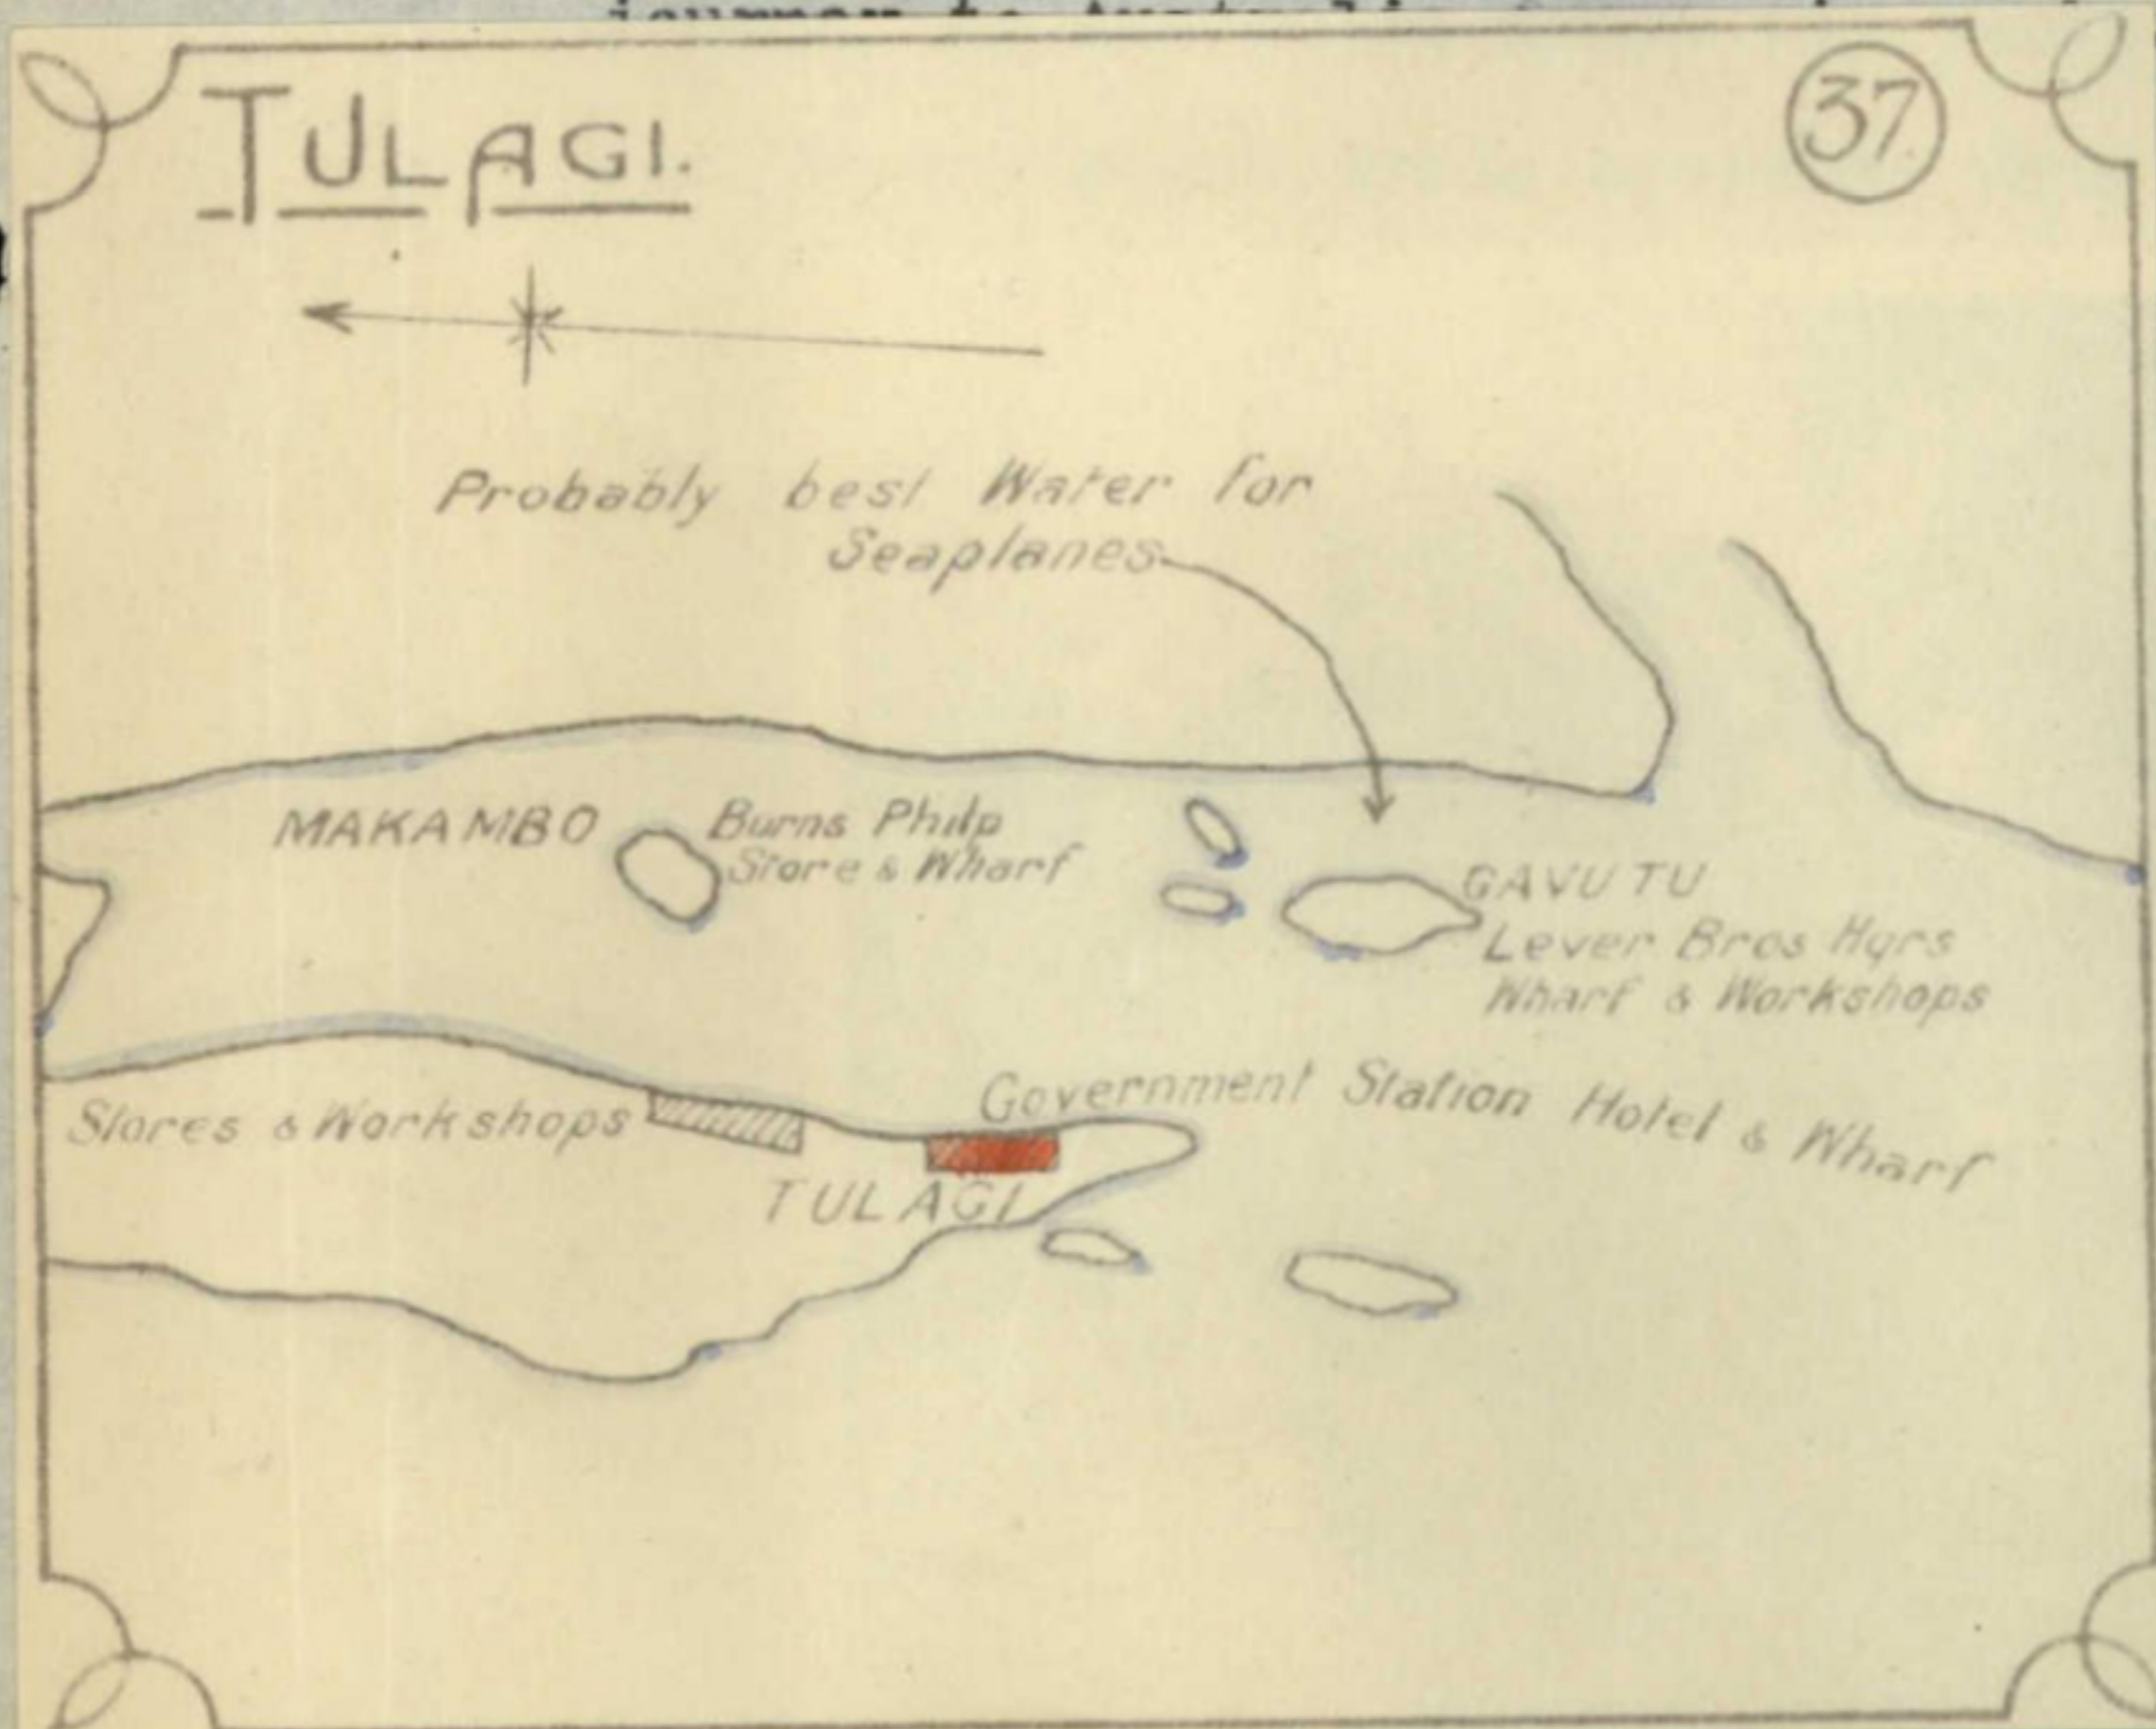 TULAGI.
37.
Probably best Water for
Seaplanes
MAKAMBO
Burns Philp
Store & Wharf
GAVUTU
Lever Bros Hqrs
Wharf & Workshops
Government Station Hotel & Wharf
Stores & Workshops
TULAGI